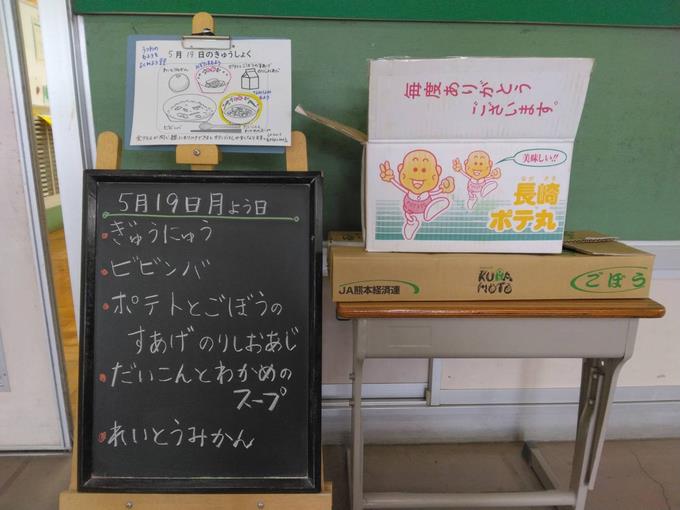 5月19日のきゅうしょく
5月19日月よう日
ぎゅうにゅう
ビビンバ
ポテトとごぼうの
すあげ のりしおあじ
だいこんとわかめの
スープ
れいとうみかん
毎度ありがとう
ございます。
美味しい!!
ながさき
長崎
ポテ丸
JA熊本経済連
KUMA
MOTO
ごぼう